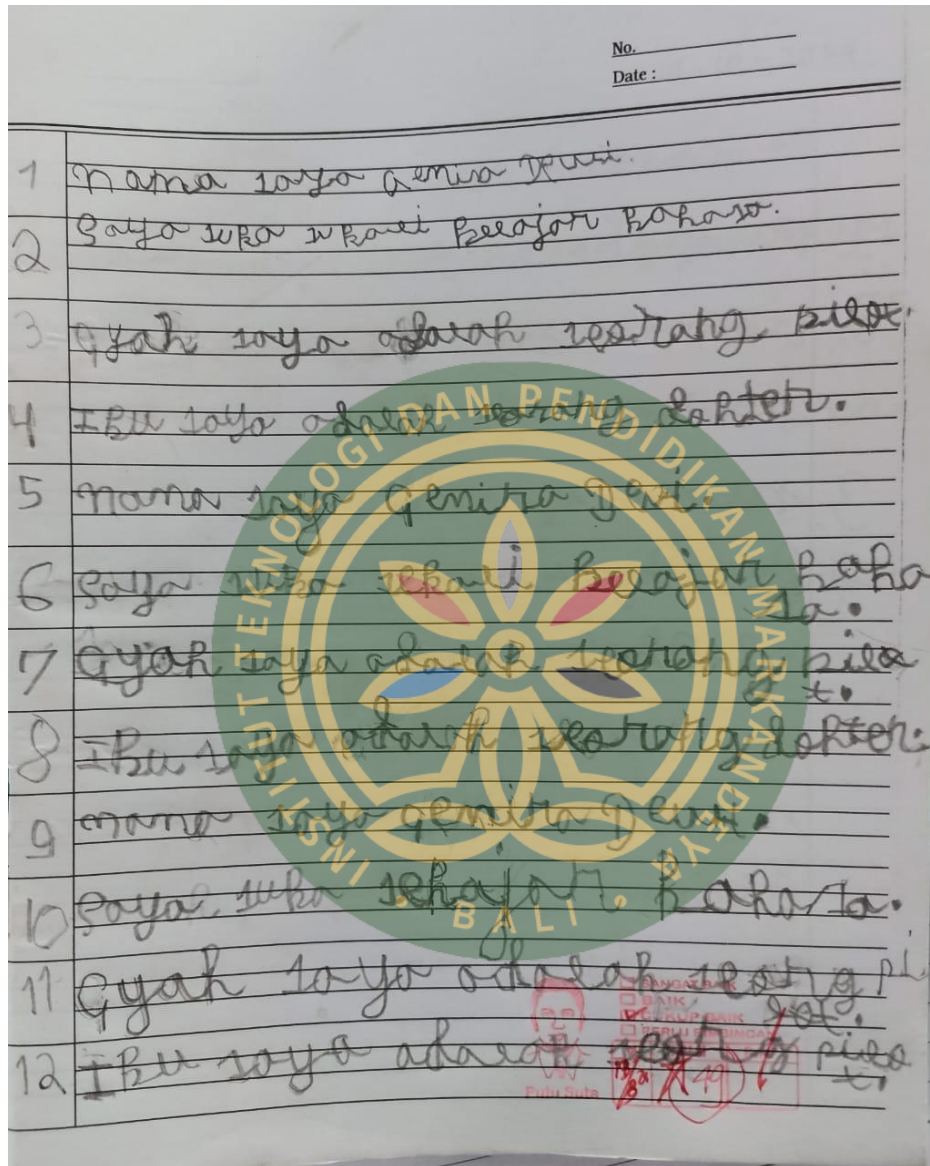 No.
Date :
1 nama saya Genira Dewi.
2 Saya suka sekali belajar bahasa.
3 Ayah saya adalah seorang pilot.
4 Ibu saya adalah seorang dokter.
5 nama saya genira Dewi.
6 Saya suka sekali belajar baha
sa.
7 Ayah saya adalah seorang pilo
t.
8 Ibu saya adalah seorang dokter.
9 nama saya genira Dewi.
10 Saya suka sekajar bahasa.
11 Ayah saya adalah seorng pi
lot.
12 Ibu saya adalah seorng pilo
t.
INSTITUT TEKNOLOGI DAN PENDIDIKAN MARKANDEYA
BALI
SANGAT BAIK
BAIK
CUKUP BAIK
PERLU BIMBINGAN
Putu Suta